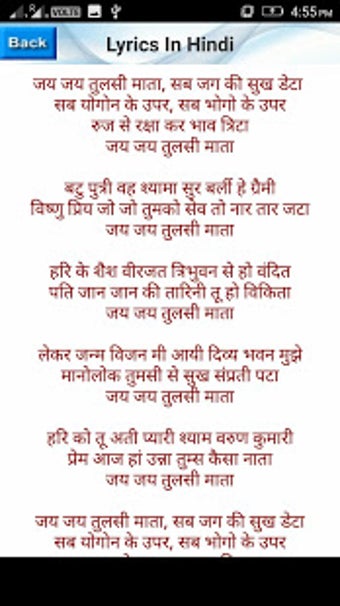 VOLTE
4:55PM
Back
Lyrics In Hindi
जय जय तुलसी माता, सब जग की सुख डेटा
सब योगोन के उपर, सब भोगो के उपर
रुज से रक्षा कर भाव त्रिटा
जय जय तुलसी माता
बटु पुत्री वह श्यामा सुर बर्ली हे ग्रैमी
विष्णु प्रिय जो जो तुमको सेव तो नार तार जटा
जय जय तुलसी माता
हरि के शैश वीरजत त्रिभुवन से हो वंदित
पति जान जान की तारिनी तू हो विकिता
जय जय तुलसी माता
लेकर जन्म विजन मी आयी दिव्य भवन मुझे
मानोलोक तुमसी से सुख संप्रती पटा
जय जय तुलसी माता
हरि को तू अती प्यारी श्याम वरुण कुमारी
प्रेम आज हां उन्ना तुम्स कैसा नाता
जय जय तुलसी माता
जय जय तुलसी माता, सब जग की सुख डेटा
सब योगोन के उपर, सब भोगो के उपर